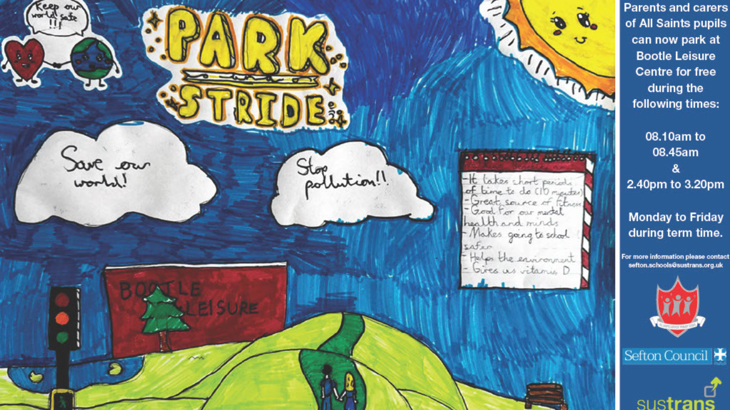 Keep our
world safe
!!!
PARK
STRIDE
Save our
world!
Stop
pollution!!
- It takes short periods
of time to do (10 minutes)
- Great source of fitness
- Good for our mental
health and minds
- Makes going to school
safer
- Helps the environment
- Gives us vitamin D
BOOTLE
LEISURE
Parents and carers
of All Saints pupils
can now park at
Bootle Leisure
Centre for free
during the
following times:
08.10am to
08.45am
&
2.40pm to 3.20pm
Monday to Friday
during term time.
For more information please contact
sefton.schools@sustrans.org.uk
Sefton Council
sustrans